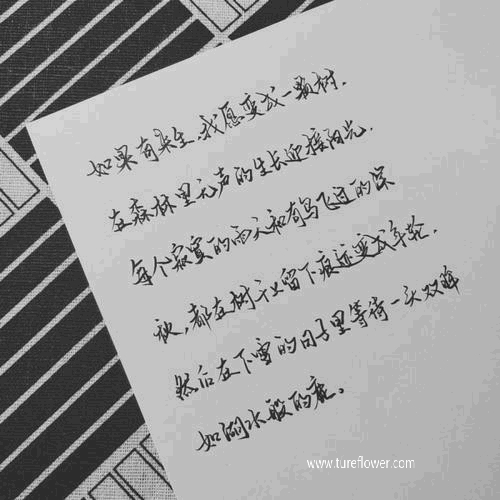 如果有来生,我愿变成一颗树.
在森林里无声的生长迎接阳光.
每个寂寞的雨天和有鸟飞过的深
秋,都在树干上留下痕迹变成年轮.
然后在下雪的日子里等待一头双眸
如湖水般的鹿。
www.tureflower.com